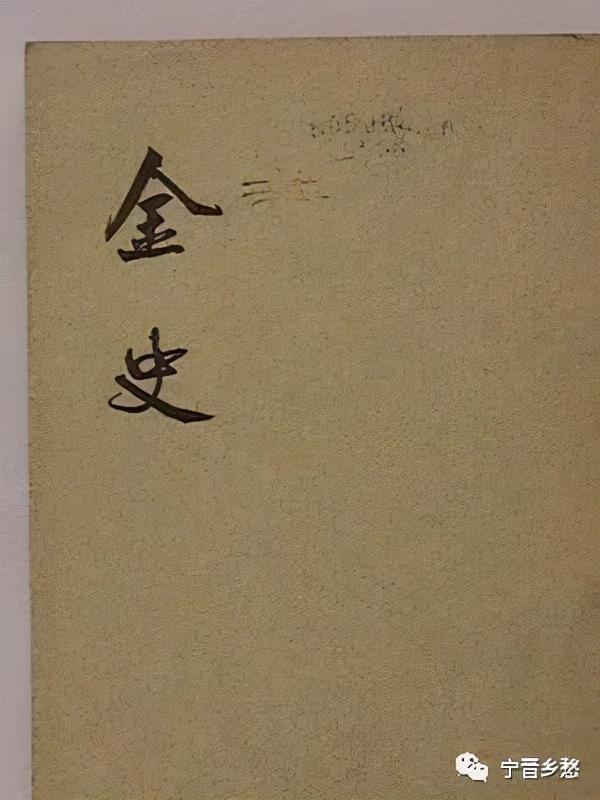 金史
宁晋乡愁